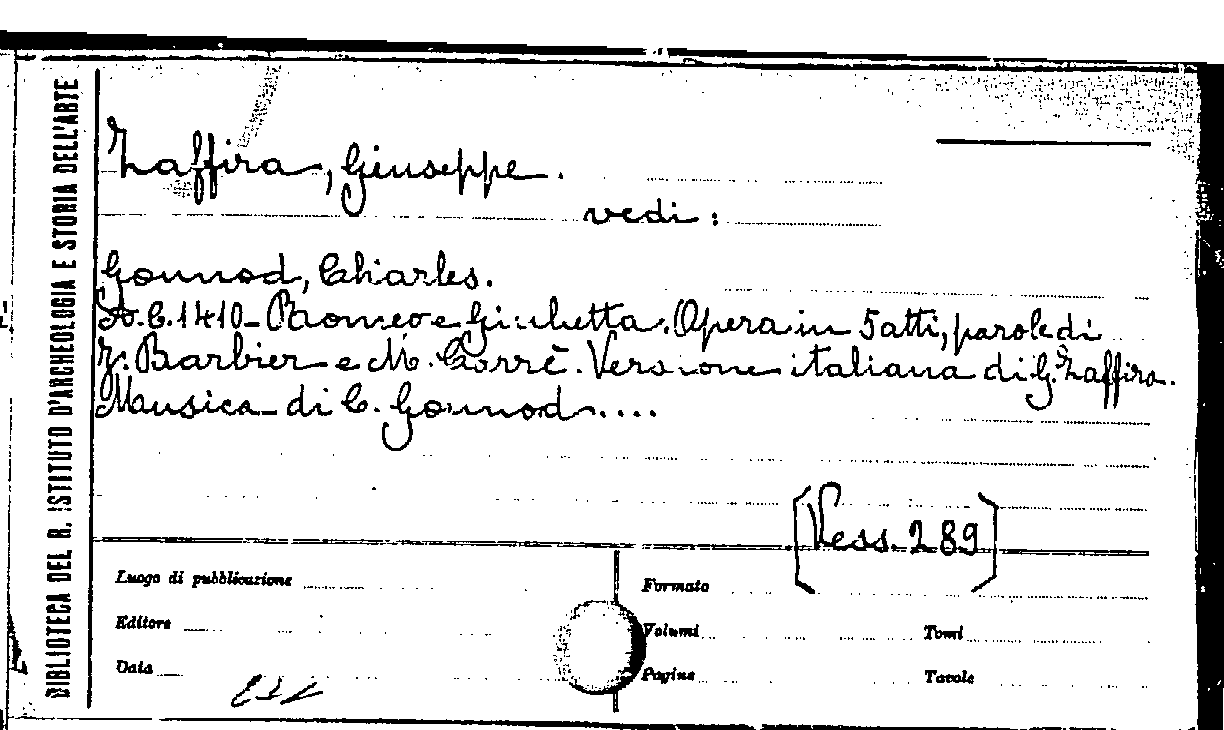 BIBLIOTECA DEL R. ISTITUTO D'ARCHEOLOGIA E STORIA DELL'ARTE
Zaffira, Giuseppe.
vedi:
Gounod, Charles.
A.C. 1410 - Romeo e Giulietta. Opera in 5 atti, parole di
J. Barbier e M. Carrè. Versione italiana di G. Zaffira.
Musica di C. Gounod....
[Vess. 289]
Luogo di pubblicazione
Formato
Editore
Volumi
Tomi
Data
Pagine
Tavole